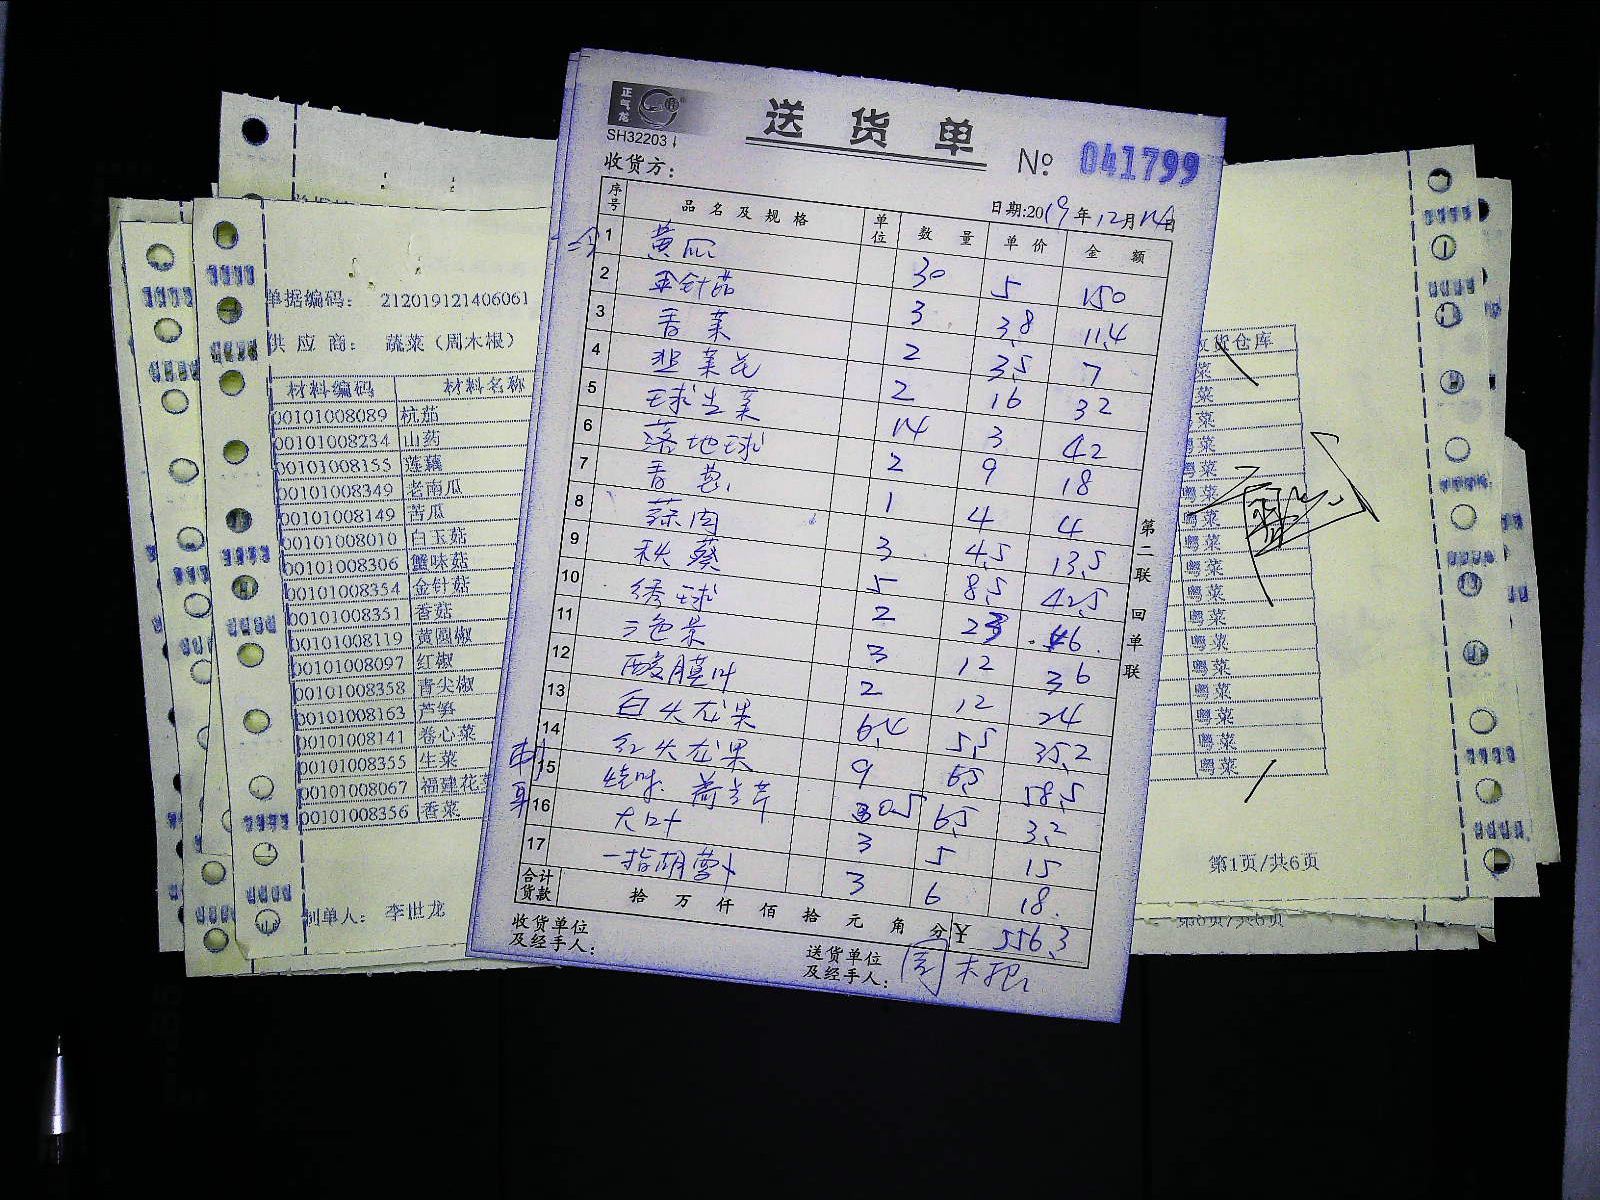 正气龙
SH32203
送货单
No. 041799
收货方:
日期:2019年12月14日
序号 品名及规格 单位 数量 单价 金额
1 黄瓜 30 5 150
2 金针菇 3 3.8 11.4
3 香菜 2 3.5 7
4 韭菜花 2 16 32
5 球生菜 14 3 42
6 落地球 2 9 18
7 香葱 1 4 4
8 蒜肉 3 4.5 13.5
9 秋葵 5 8.5 42.5
10 绣球 2 23 46
11 三色堇 3 12 36
12 酸膜叶 2 12 24
13 白火龙果 6.4 5.5 35.2
14 红火龙果 9 6.5 58.5
15 烧味 荷兰芹 0.5 6.5 3.2
16 大叶 3 5 15
17 一指胡萝卜 3 6 18
合计货款 拾万仟佰拾元角分 ¥ 556.3
收货单位及经手人:
送货单位及经手人: 周木根
第二联 回单联
单据编码: 212019121406061
供应商: 蔬菜(周木根)
材料编码 材料名称
00101008089 杭茄
00101008234 山药
00101008155 莲藕
00101008349 老南瓜
00101008149 苦瓜
00101008010 白玉菇
00101008306 蟹味菇
00101008354 金针菇
00101008351 香菇
00101008119 黄圆椒
00101008097 红椒
00101008358 青尖椒
00101008163 芦笋
00101008141 卷心菜
00101008355 生菜
00101008067 福建花菜
00101008356 香菜
制单人: 李世龙
收货仓库
菜
菜
粤菜
粤菜
粤菜
粤菜
粤菜
粤菜
粤菜
粤菜
粤菜
粤菜
粤菜
粤菜
粤菜
粤菜
粤菜
第1页/共6页
第6页/共6页